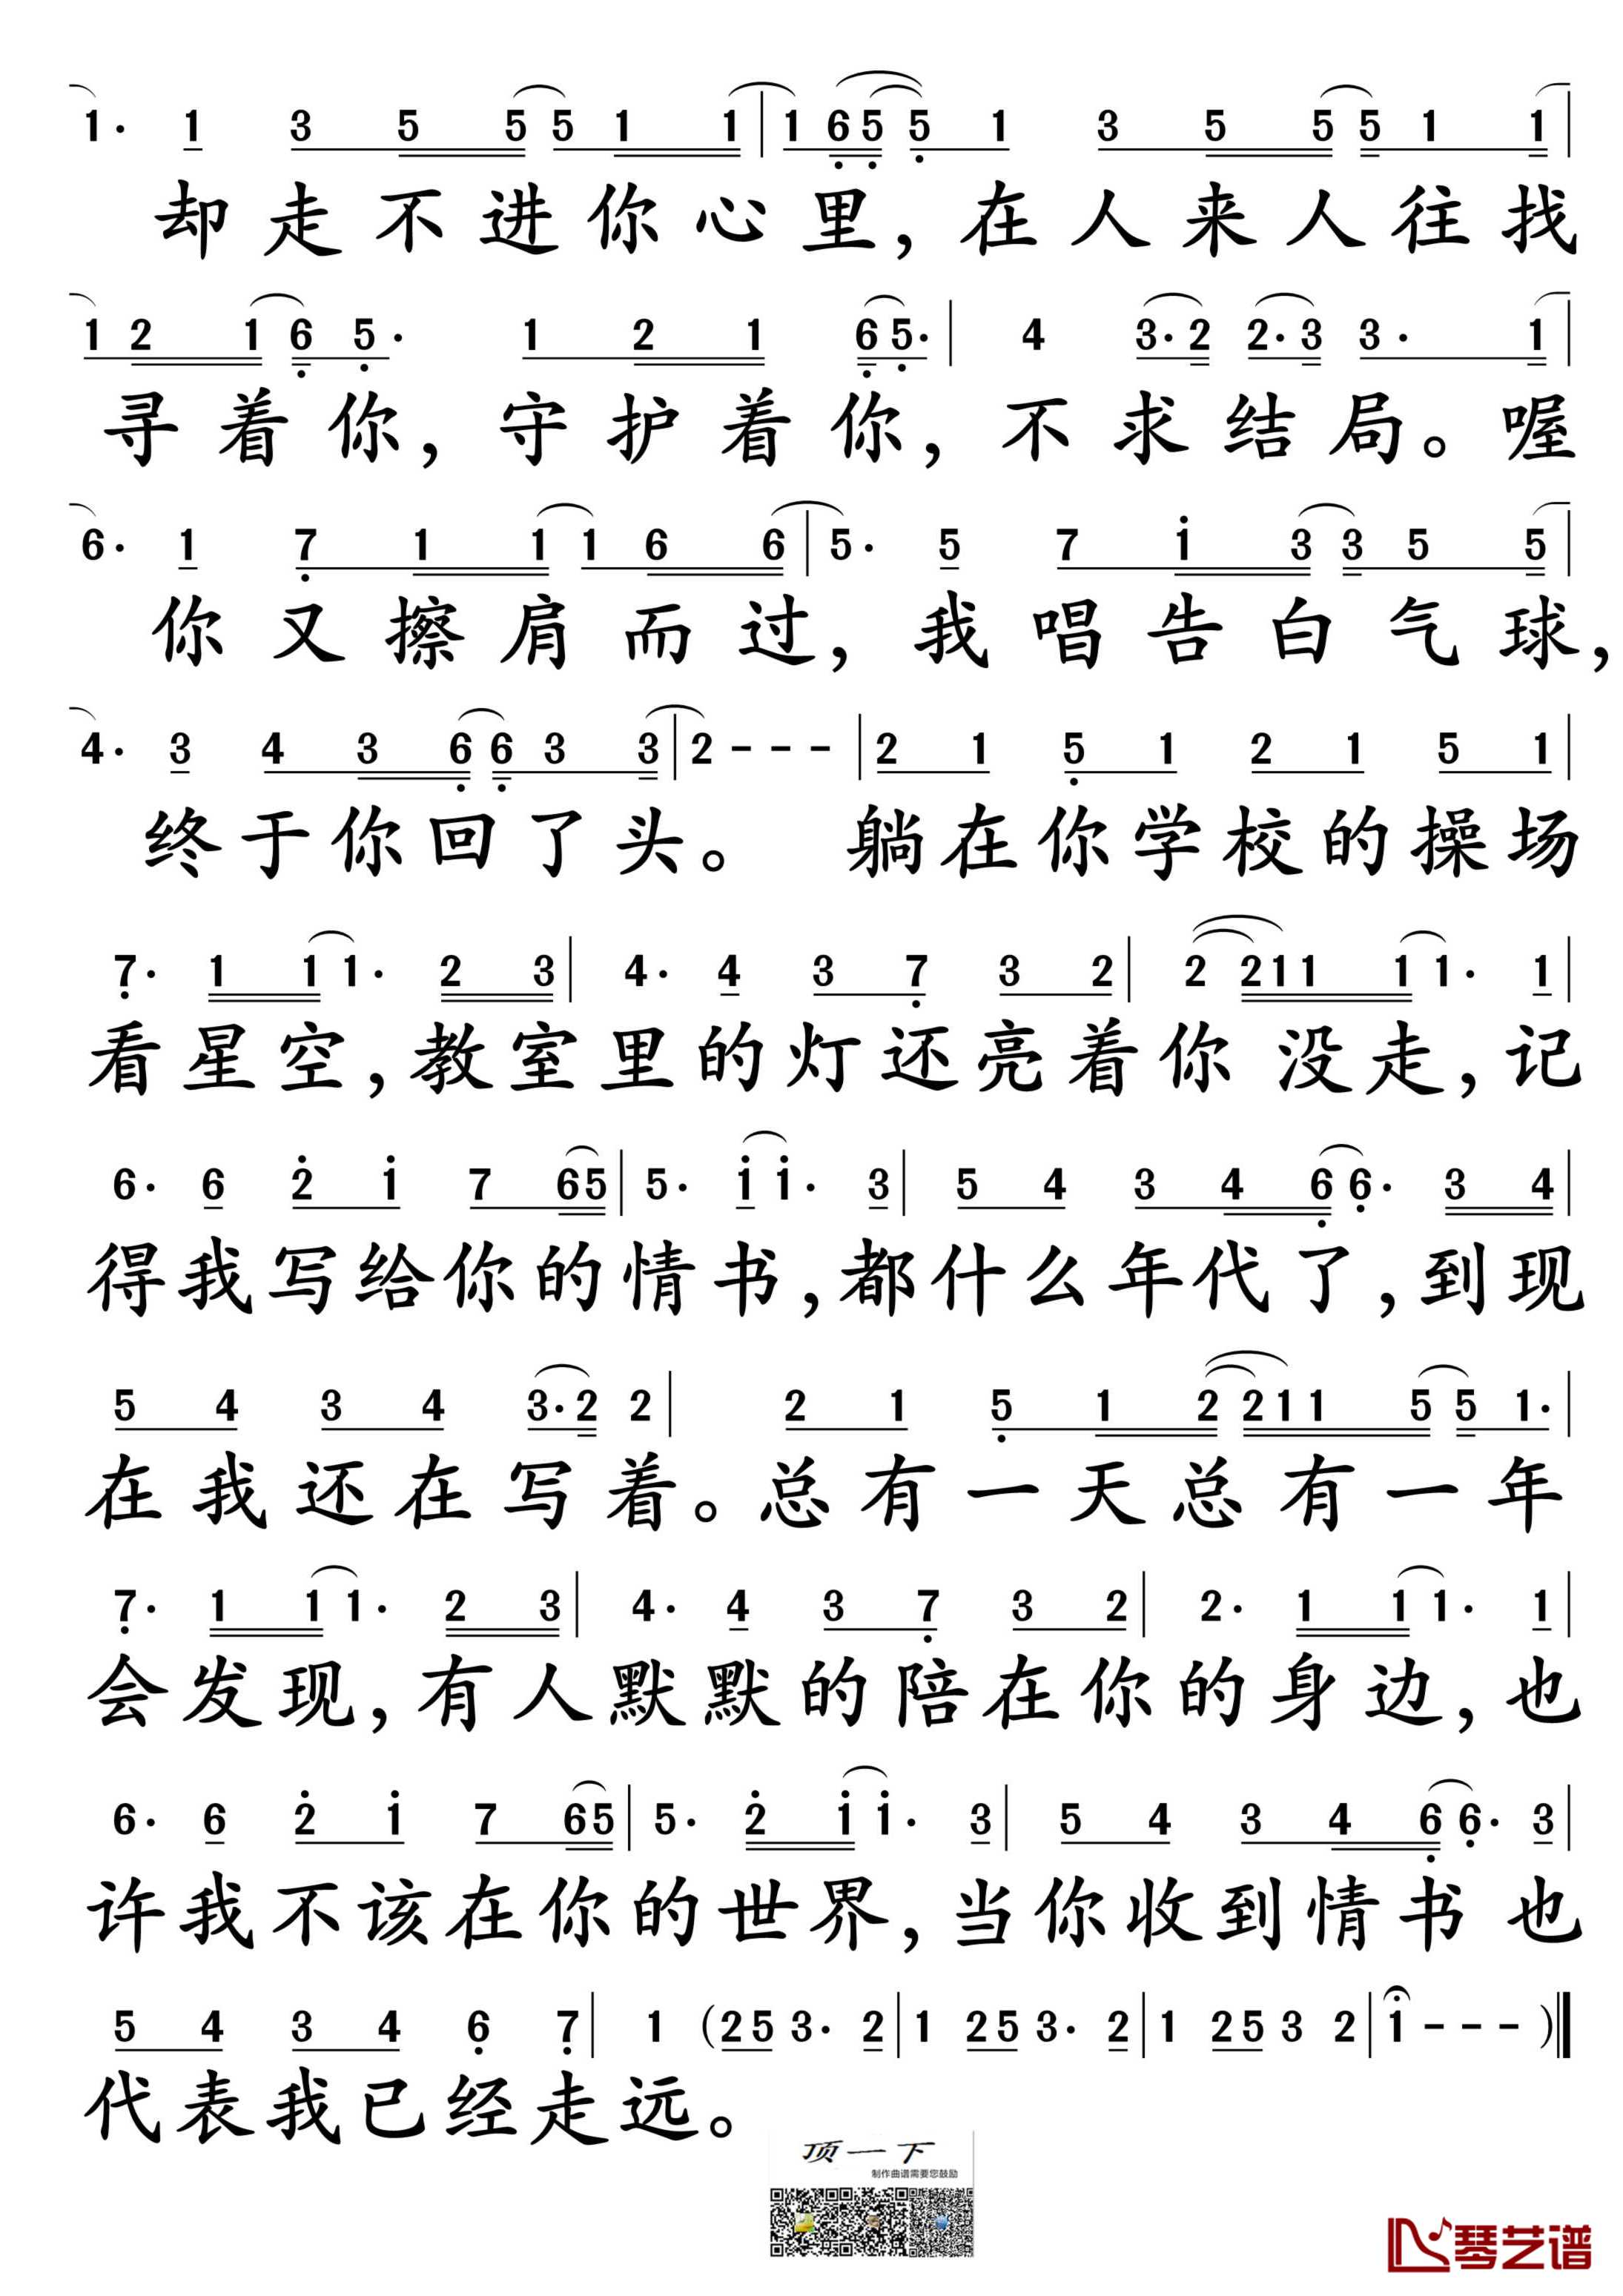 1· 1 3 5 5 5 1 1 | 1 6 5 5 1 3 5 5 5 1 1 |
却走不进你心里，在人来人往找
1 2 1 6 5· 1 2 1 6 5· | 4 3· 2 2· 3 3· 1 |
寻着你，守护着你，不求结局。喔
6· 1 7 1 1 1 6 6 | 5· 5 7 i 3 3 5 5 |
你又擦肩而过，我唱告白气球，
4· 3 4 3 6 6 3 3 | 2 - - - | 2 1 5 1 2 1 5 1 |
终于你回了头。躺在你学校的操场
7· 1 1 1· 2 3 | 4· 4 3 7 3 2 | 2 2 1 1 1 1· 1 |
看星空，教室里的灯还亮着你没走，记
6· 6 2 i 7 6 5 | 5· i i· 3 | 5 4 3 4 6 6· 3 4 |
得我写给你的情书，都什么年代了，到现
5 4 3 4 3· 2 2 | 2 1 5 1 2 2 1 1 5 5 1· |
在我还在写着。总有一天总有一年
7· 1 1 1· 2 3 | 4· 4 3 7 3 2 | 2· 1 1 1· 1 |
会发现，有人默默的陪在你的身边，也
6· 6 2 i 7 6 5 | 5· 2 i i· 3 | 5 4 3 4 6 6· 3 |
许我不该在你的世界，当你收到情书也
5 4 3 4 6 7 | 1 (2 5 3· 2 | 1 2 5 3· 2 | 1 2 5 3 2 | i - - - )‖
代表我已经走远。
顶一下
制作曲谱需要您鼓励
琴艺谱